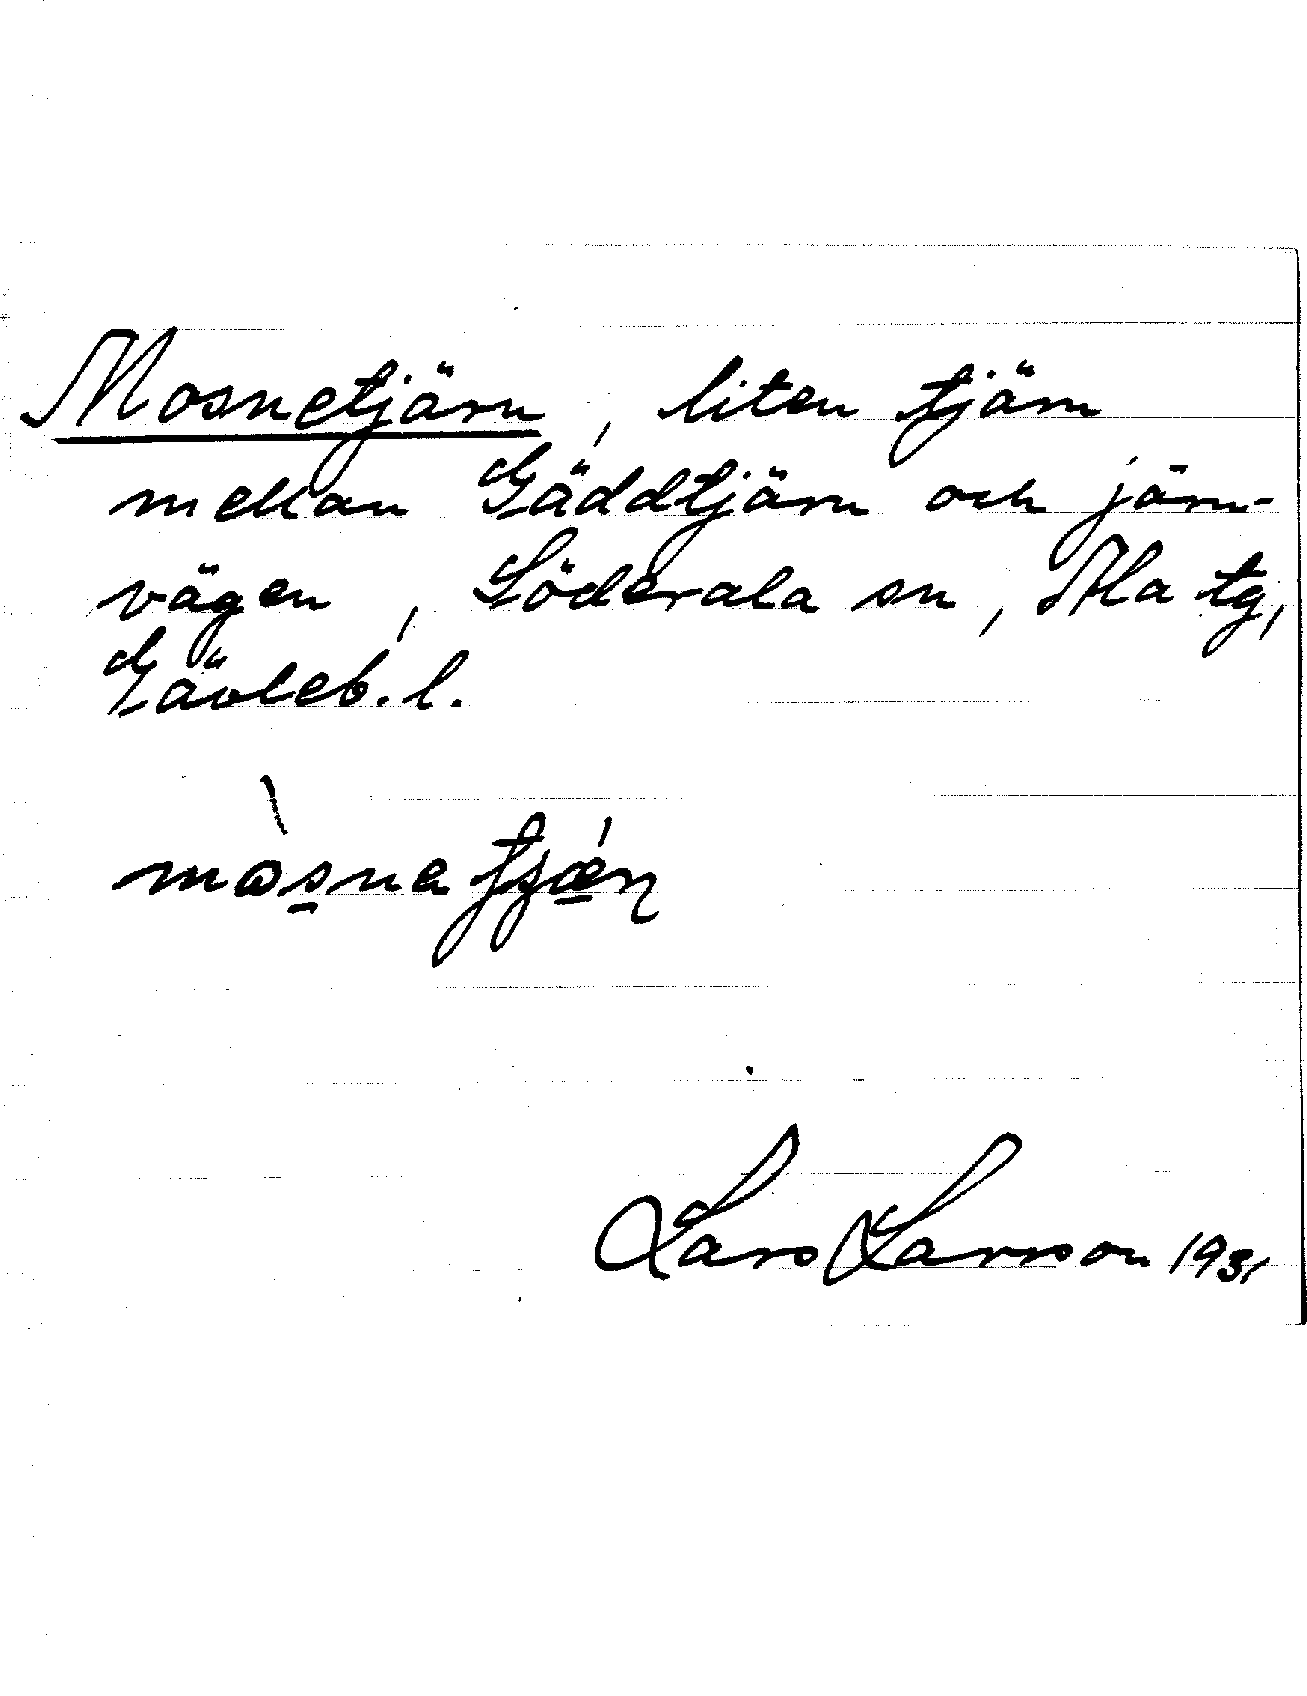 Mosnetjärn, liten tjärn
mellan Gäddtjärn och järn-
vägen, Söderala sn, Ala tg,
Gävleb. l.
Lars Larsson 1931